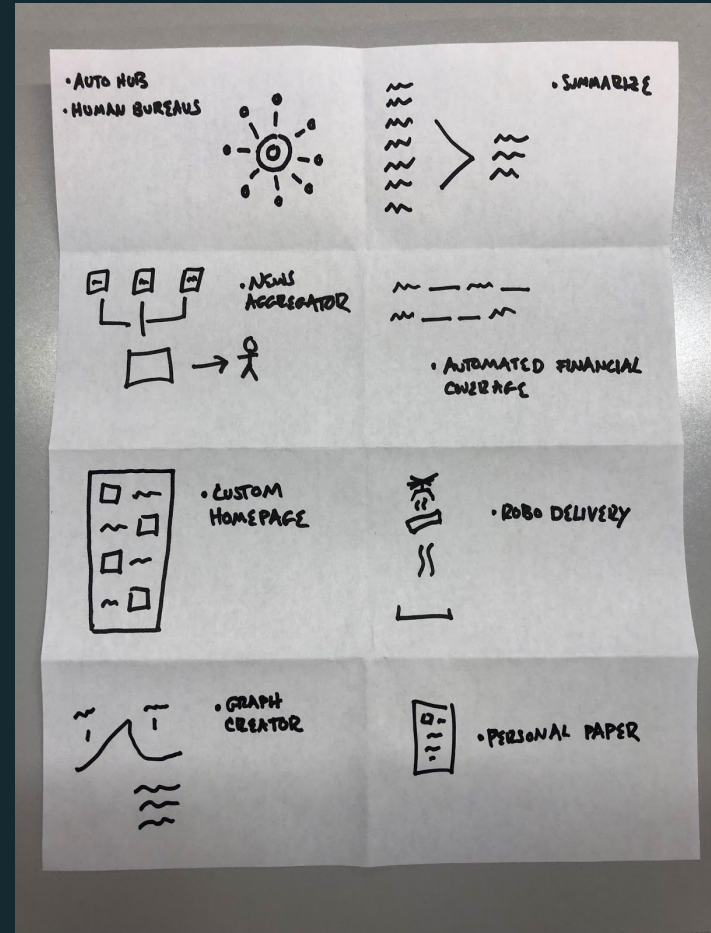 • AUTO HUB
• HUMAN BUREAUS
• SUMMARIZE
• NEWS
AGGREGATOR
• AUTOMATED FINANCIAL
COVERAGE
• CUSTOM
HOMEPAGE
• ROBO DELIVERY
• GRAPH
CREATOR
• PERSONAL PAPER